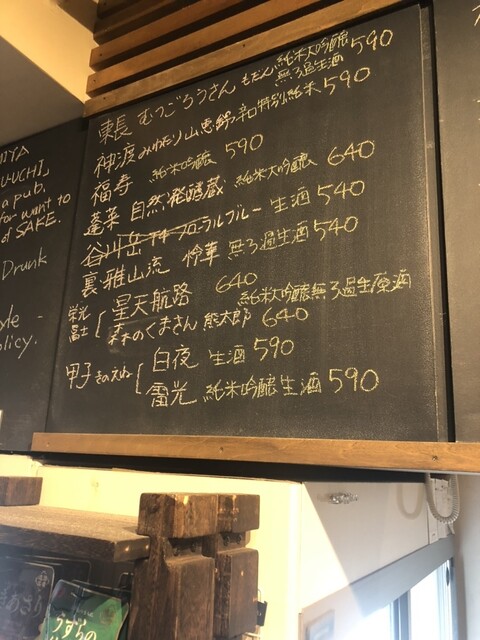 東長 むつごろうさん もだん 純米大吟醸 無ろ過生酒 590
神渡 みわたり 山恵錦 辛口特別純米 590
福寿 純米吟醸 590
蓬莱 自然発酵蔵 純米大吟醸 640
谷川岳 フローラルブルー 生酒 540
裏・雅山流 怜華 無ろ過生酒 540
栄光冨士 星天航路 640 純米大吟醸無ろ過生原酒
森のくまさん 熊太郎 640
甲子 きのえね 白夜 生酒 590
雷光 純米吟醸生酒 590
a pub.
for want to
SAKE.
Drunk
olicy.
うずらの